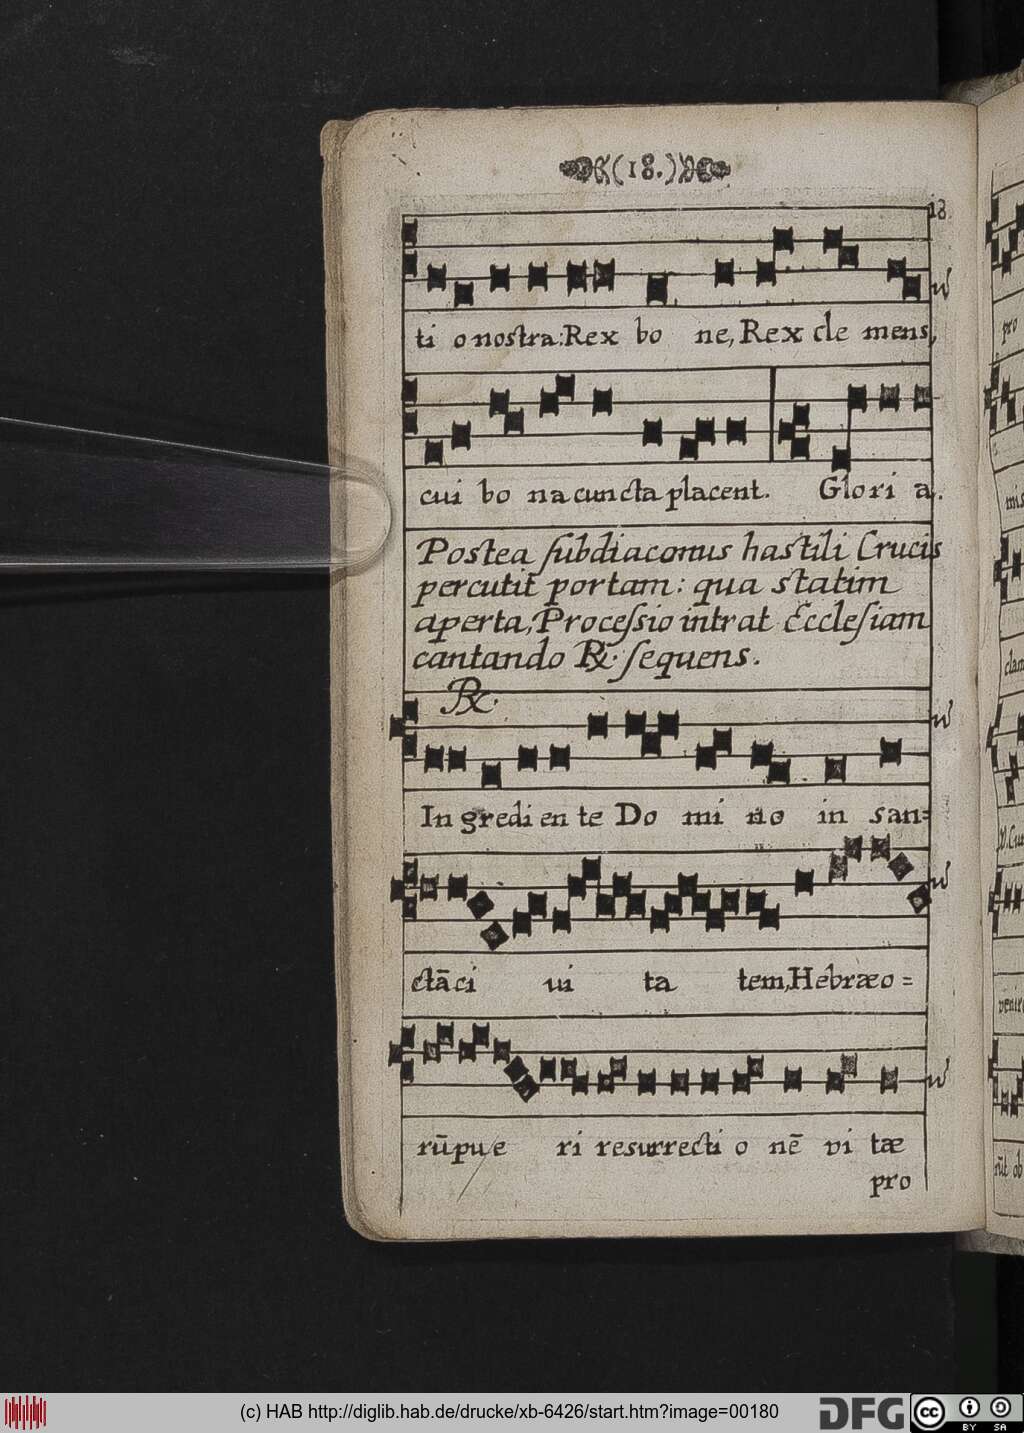 (18.)
18.
ti o nostra: Rex bo ne, Rex cle mens,
cui bo na cuncta placent. Glori a.
Postea subdiaconus hastili Crucis
percutit portam: qua statim
aperta, Processio intrat Ecclesiam
cantando ℞. sequens.
℞.
In gredi en te Do mi no in san=
ctā ci ui ta tem, Hebræo=
rū pu e ri resurrecti o nē vi tæ
pro
pro
mis
clam
venire
rūt ob
(c) HAB http://diglib.hab.de/drucke/xb-6426/start.htm?image=00180
DFG
cc
BY SA